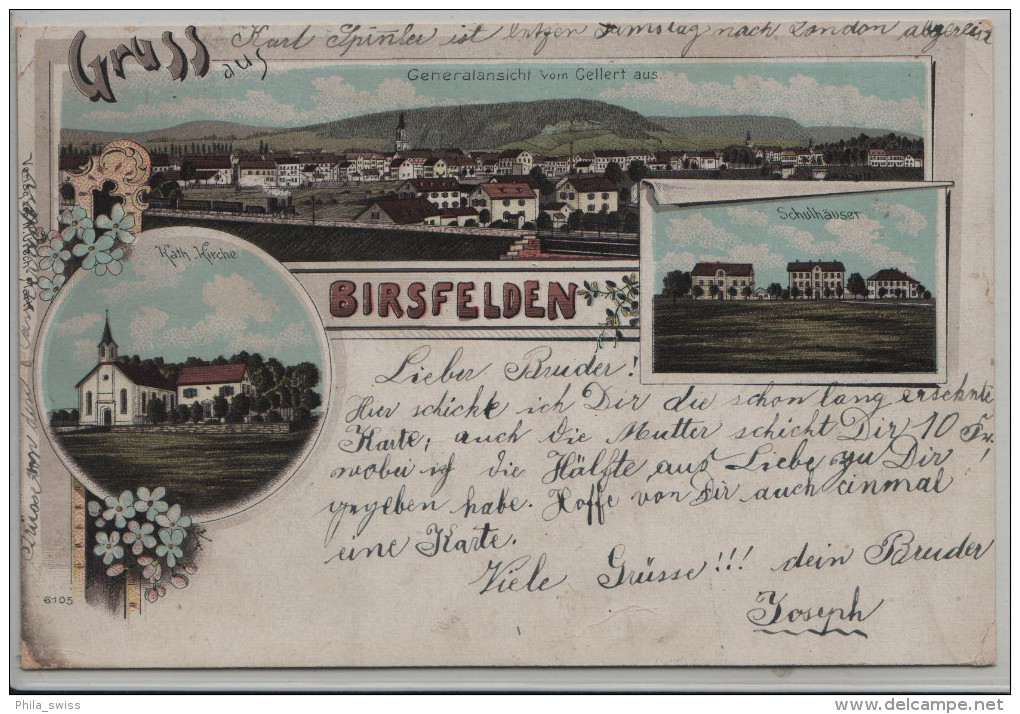 Gruss aus
Karl Spinler ist letzen Samstag nach London abgereist
Generalansicht vom Gellert aus.
Schulhäuser
Kath. Kirche
BIRSFELDEN
Lieber Bruder!
Hier schicke ich Dir die schon lang ersehnte
Karte; auch die Mutter schickt Dir 10 Fr,
wobei ich die Hälfte aus Liebe zu Dir
gegeben habe. Hoffe von Dir auch einmal
eine Karte.
Viele Grüsse!!! dein Bruder
Joseph
6105
Phila_swiss
www.delcampe.net